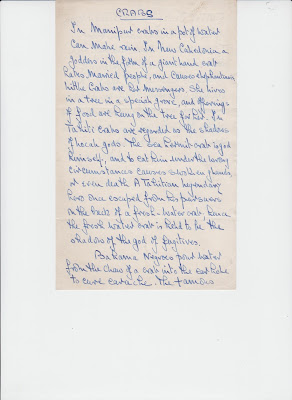 CRABS
In Manipur crabs in a pot of water
can make rain. In New Caledonia a
goddess in the form of a giant land crab
hates married people, and causes elephantiasis
little crabs are her messengers. She lives
in a tree in a special grove, and offerings
of food are hung on the tree for her. In
Tahiti crabs are regarded as the shadows
of local gods. The sea hermit-crab is god
himself, and to eat him under the wrong
circumstances causes swollen
or even death. A Tahitian legendary
hero once escaped from his pursuers
on the back of a fresh-water crab, hence
the fresh water crab is held to be the
shadow of the god of fugitives.
Bahama Negroes pour water
from the claw of a crab into the ear hole
to cure earache. The famous